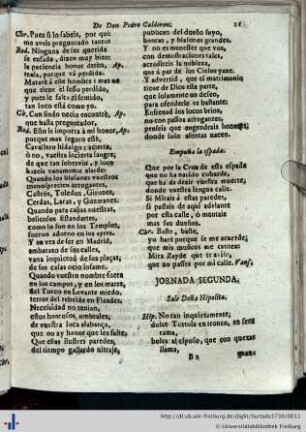 De Don Pedro Calderon.
Chr. Pues si lo sabeis, por què
me aveis preguntado tanto?
Rod. Ninguna dèses querida
se enfada, dizen muy bien:
la paciencia honor deten, Ap.
tenla, porque và perdida.
que siente el
tan loca està como yo.
Ch. Con lindo necio encontrè, Ap.
que busta preguntador.
Rod. Esto le importa à mi honor, Ap.
porque mas seguro estè,
Cavallero hidalgo; ò cierta,
ò no, vuestra incierta sangre,
de que tan sobervio, y loco
hazeis vanamente alarde:
Quando los blasones vuestros
menosprecien arrogantes,
Castros, Toledos, Girones,
Cerdas, Laras, y Guzmanes:
Quando para casas vuestras,
belicosos Estandartes,
como lo son en los Templos,
fueron adorno en los ayres.
Y os veta de ser en Madrid,
embarazo de las calles,
vana inquietud de sus plaças,
de sus calas ocio infame.
Quando vuestro nombre fuera
en los campos, y en los mares,
del Turco en Levante miedo,
terror del rebelde en Flandes.
Necesidad no tenian,
estos honrosos, umbrales,
de vuestra loca alabança,
que no ay honor que les falte.
Que estas ilustres paredes,
del tiempo gallardo ultraje,
publican del dueño suyo,
honras, y blasones grandes.
Y no es menester que vos,
con demonstraciones tales,
acrisoleis la nobleza,
que à par de los Cielos yaze.
Y advertid, que el matrimonio
tiene de Dios esta parte,
que solamente un deseo,
para ofenderle es bastante:
Enfrenad los locos brios,
no con passos arrogantes,
penseis que engendrais honores
donde solo afentas nacen.
Empuña la espada.
Que por la Cruz de esta espada
que no ha nacido cobarde,
que he de dezir vuestra muerte,
donde vuestra lengua calle.
Si Mirais à estas paredes,
si passeis de aqui adelante
por esta calle, ò montais
mas sus dueños.
Chr. Baste, baste,
yo harè porque se me acuerde;
que mis musicos me canten:
Mira Zayde que te aviso,
que no passes por mi calle. Vans.
JORNADA SEGUNDA.
Sale Doña Hipolita.
Hip. No tan inquietamente,
dulce Tortola en tronco, en seca
rama,
buscas al esposo, que con quexas
llama,
B 2
http://dl.ub.uni-freiburg.de/diglit/hurtado1730/0011
© Universitätsbibliothek Freiburg